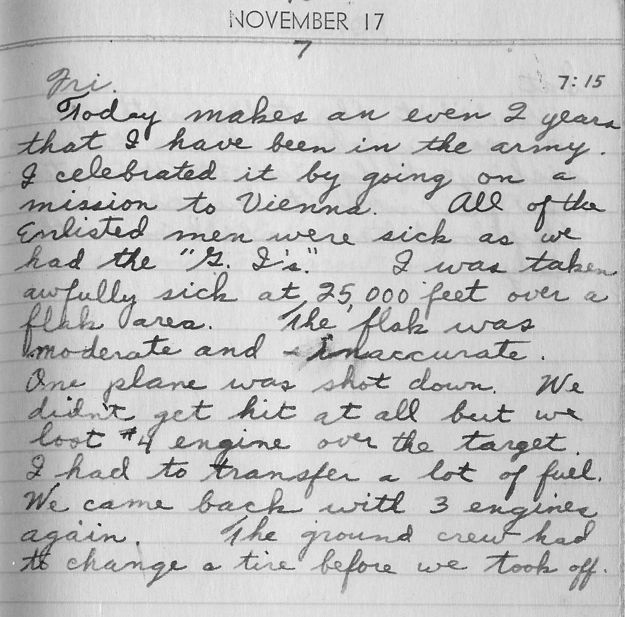 NOVEMBER 17
7
Fri. 7:15
Today makes an even 2 years
that I have been in the army.
I celebrated it by going on a
mission to Vienna. All of the
Enlisted men were sick as we
had the "G. I's." I was taken
awfully sick at 25,000 feet over a
flak area. The flak was
moderate and - Inaccurate.
One plane was shot down. We
didn't get hit at all but we
loot #4 engine over the target.
I had to transfer a lot of fuel.
We came back with 3 engines
again. The ground crew had
to change a tire before we took off.